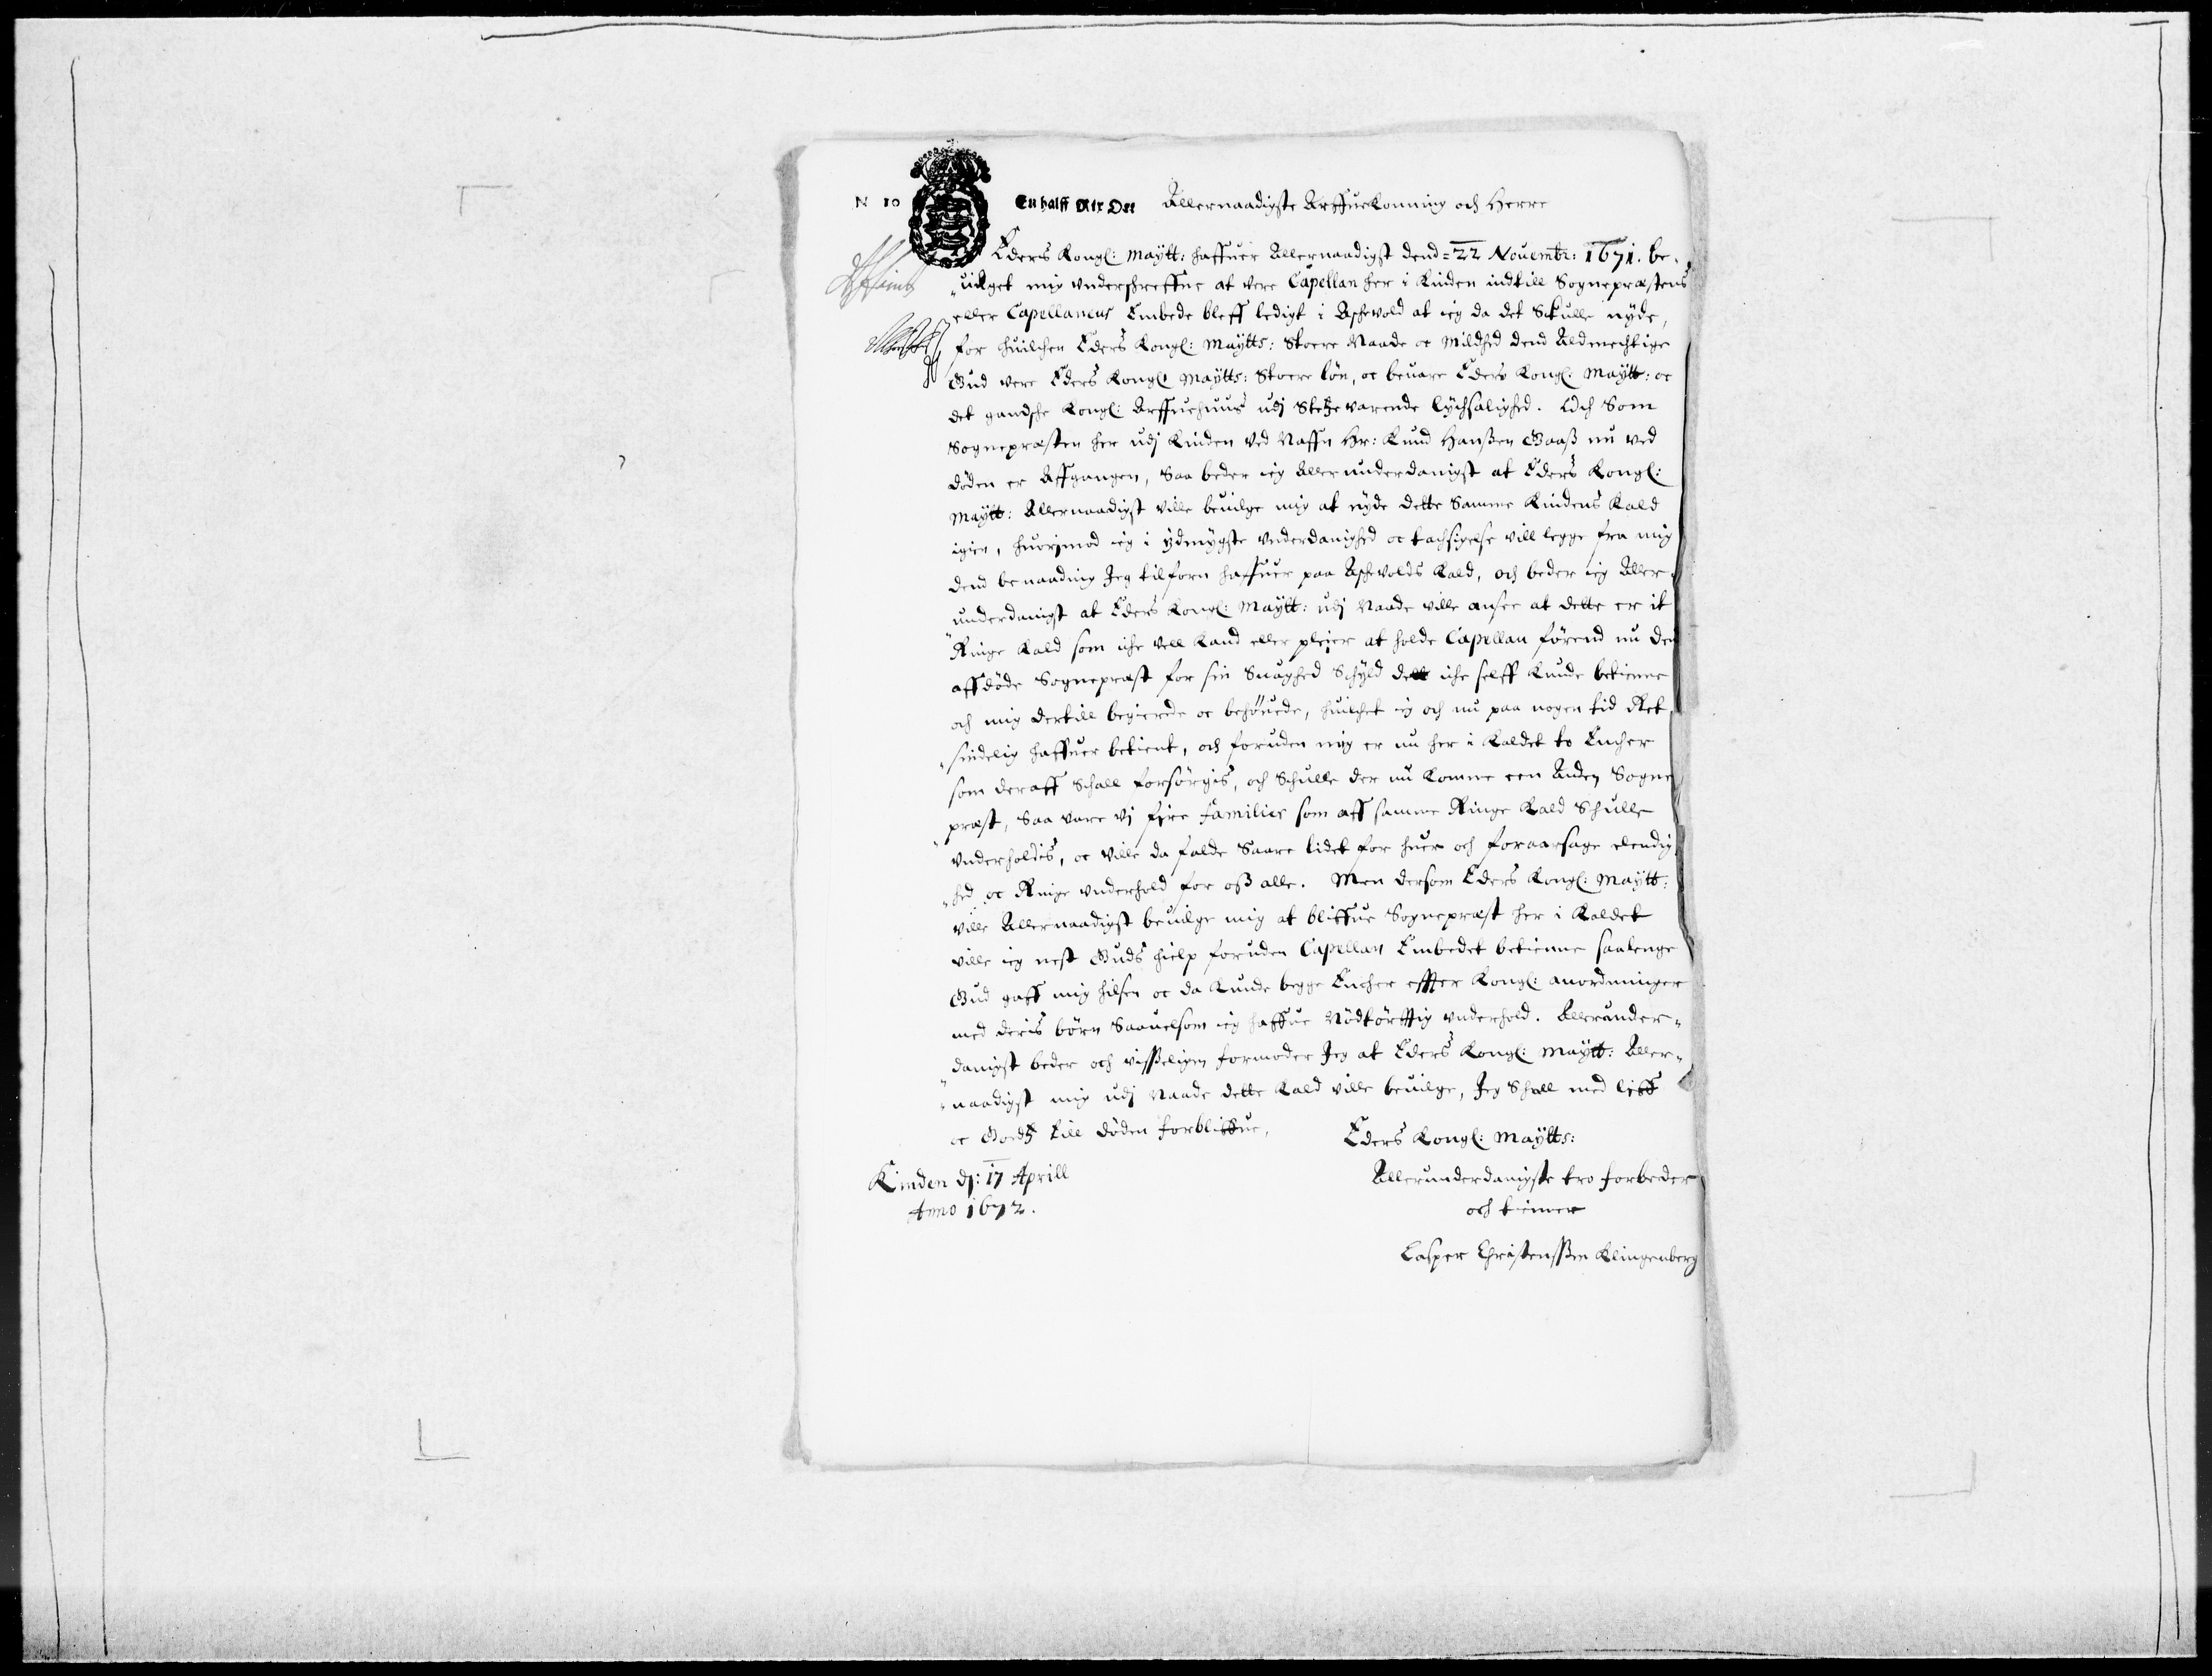 N 10
En halff Rix Ort Allernaadigste Arffuekonning och Herre
Eders Kongl: Maÿtt: haffuer Allernaadigst dend 22 Nouembr: 1671. be„
„uilget mig underschreffne at vere Capellan her i Kinden indtill Sognepræstens
eller Capellaneus Embede bleff ledigt i Aschevold at ieg da det Skulle nyde,
for huilchen Eders Kongl: Maÿtts: Stoere Naade oc Mildhed dend Aldmechtige
Gud vere Eders Kongl Maÿtts: Stoere løn, oc beuare Eders Kongl: Maÿtt: oc
det gandsche Kongl: Arffuehuus udj Stetze varende lychsalighed. Och Som
Sognepræsten her udj Kinden ved Naffn Hr: Knud Hanßen Gaaß nu ved
døden er Affgangen, Saa beder ieg Allerunderdanigst at Eders Kongl:
Maÿtt: Allernaadigst ville beuilge mig at nyde dette Samme Kindens Kald
igien, huorimod ieg i ydmygste underdanighed oc tachsigelse vill legge fra mig
dend benaading Jeg tilforn haffuer paa Aschevolds Kald, och beder ieg Aller„
„underdanigst at Eders Kongl: Maÿtt: udj Naade ville ansee at dette er it
Ringe Kald som iche vell kand eller pleier at holde Capellan førend nu den
affdøde Sogneprest for sin Suaghed Schyld dett iche selff kunde betiene
och mig dertill begierede oc behøuede, huilchet ieg och nu paa nogen tid Ret„
„sindelig haffuer betient, och foruden mig er nu her i Kaldet to Encher
som deraff Schall forsørgis, och Schulle der nu komme een Anden Sogne„
„prest, Saa vare vj fire Familier som aff samme Ringe Kald Schulle
underholdis, oc ville da falde Saare lidet for huer och foraarsage elendig„
„hed oc Ringe underhold for oß alle. Men dersom Eders Kongl: Maÿtt:
ville Allernaadigst beuilge mig at bliffue Sogneprest her i Kaldet
ville ieg nest Guds hielp foruden Capellan Embedet betienne saalenge
Gud gaff mig hilsen oc da kunde begge Encher effter Kongl: anordninger
med deris børn Saauelsom ieg haffue Nødtørfftig underhold. Allerunder„
„danigst beder och visseligen formoder Jeg at Eders Kongl: Maÿtt: Aller„
„naadigst mig udj Naade dette Kald ville beuilge, Jeg Schall med liff
oc Godtz till døden forbliffue,
Eders Kongl: Maÿtts:
Kinden dj: 17 Aprill
Anno 1672.
Allerunderdanigste tro forbeder
och tienner
Casper Christensßen Klingenberg